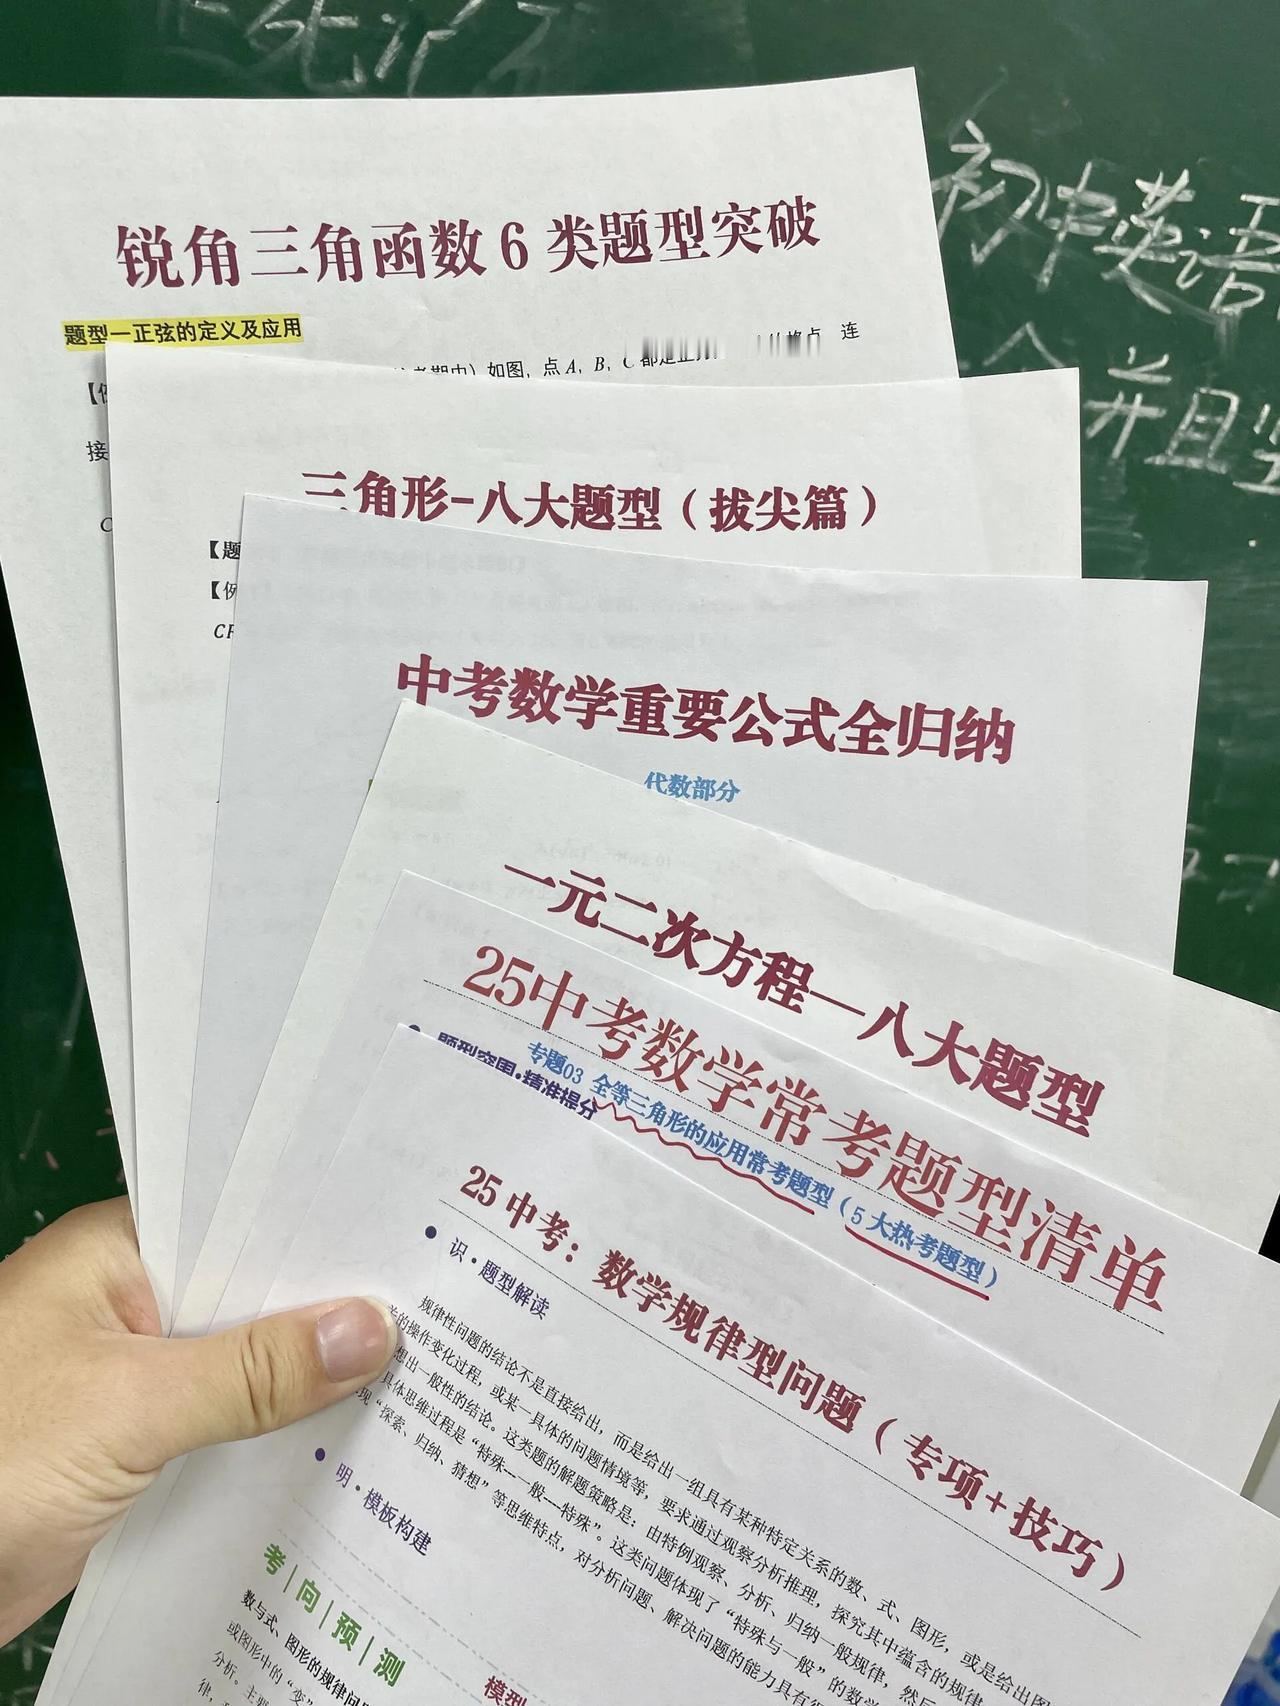 初中英语
并且
锐角三角函数6类题型突破
题型一正弦的定义及应用
如图，点A，B，C都是正 格点 连
接
三角形-八大题型（拔尖篇）
【题
【例
CF
中考数学重要公式全归纳
代数部分
一元二次方程—八大题型
25中考数学常考题型清单
专题03 全等三角形的应用常考题型（5大热考题型）
题型突围·精准提分
25中考：数学规律型问题（专项+技巧）
识·题型解读
规律性问题的结论不是直接给出，而是给出一组具有某种特定关系的数、式、图形，或是给出图
的操作变化过程，或某一具体的问题情境等，要求通过观察分析推理，探究其中蕴含的规律
想出一般性的结论。这类题的解题策略是：由特例观察、分析、归纳一般规律，然后
具体思维过程是“特殊---一般---特殊”。这类问题体现了“特殊与一般”的数学
现“探索、归纳、猜想”等思维特点，对分析问题、解决问题的能力具有很
明·模板构建
考|向|预|测
模型
数与式、图形的规律问
或图形中的“变”
分析。主要
律，